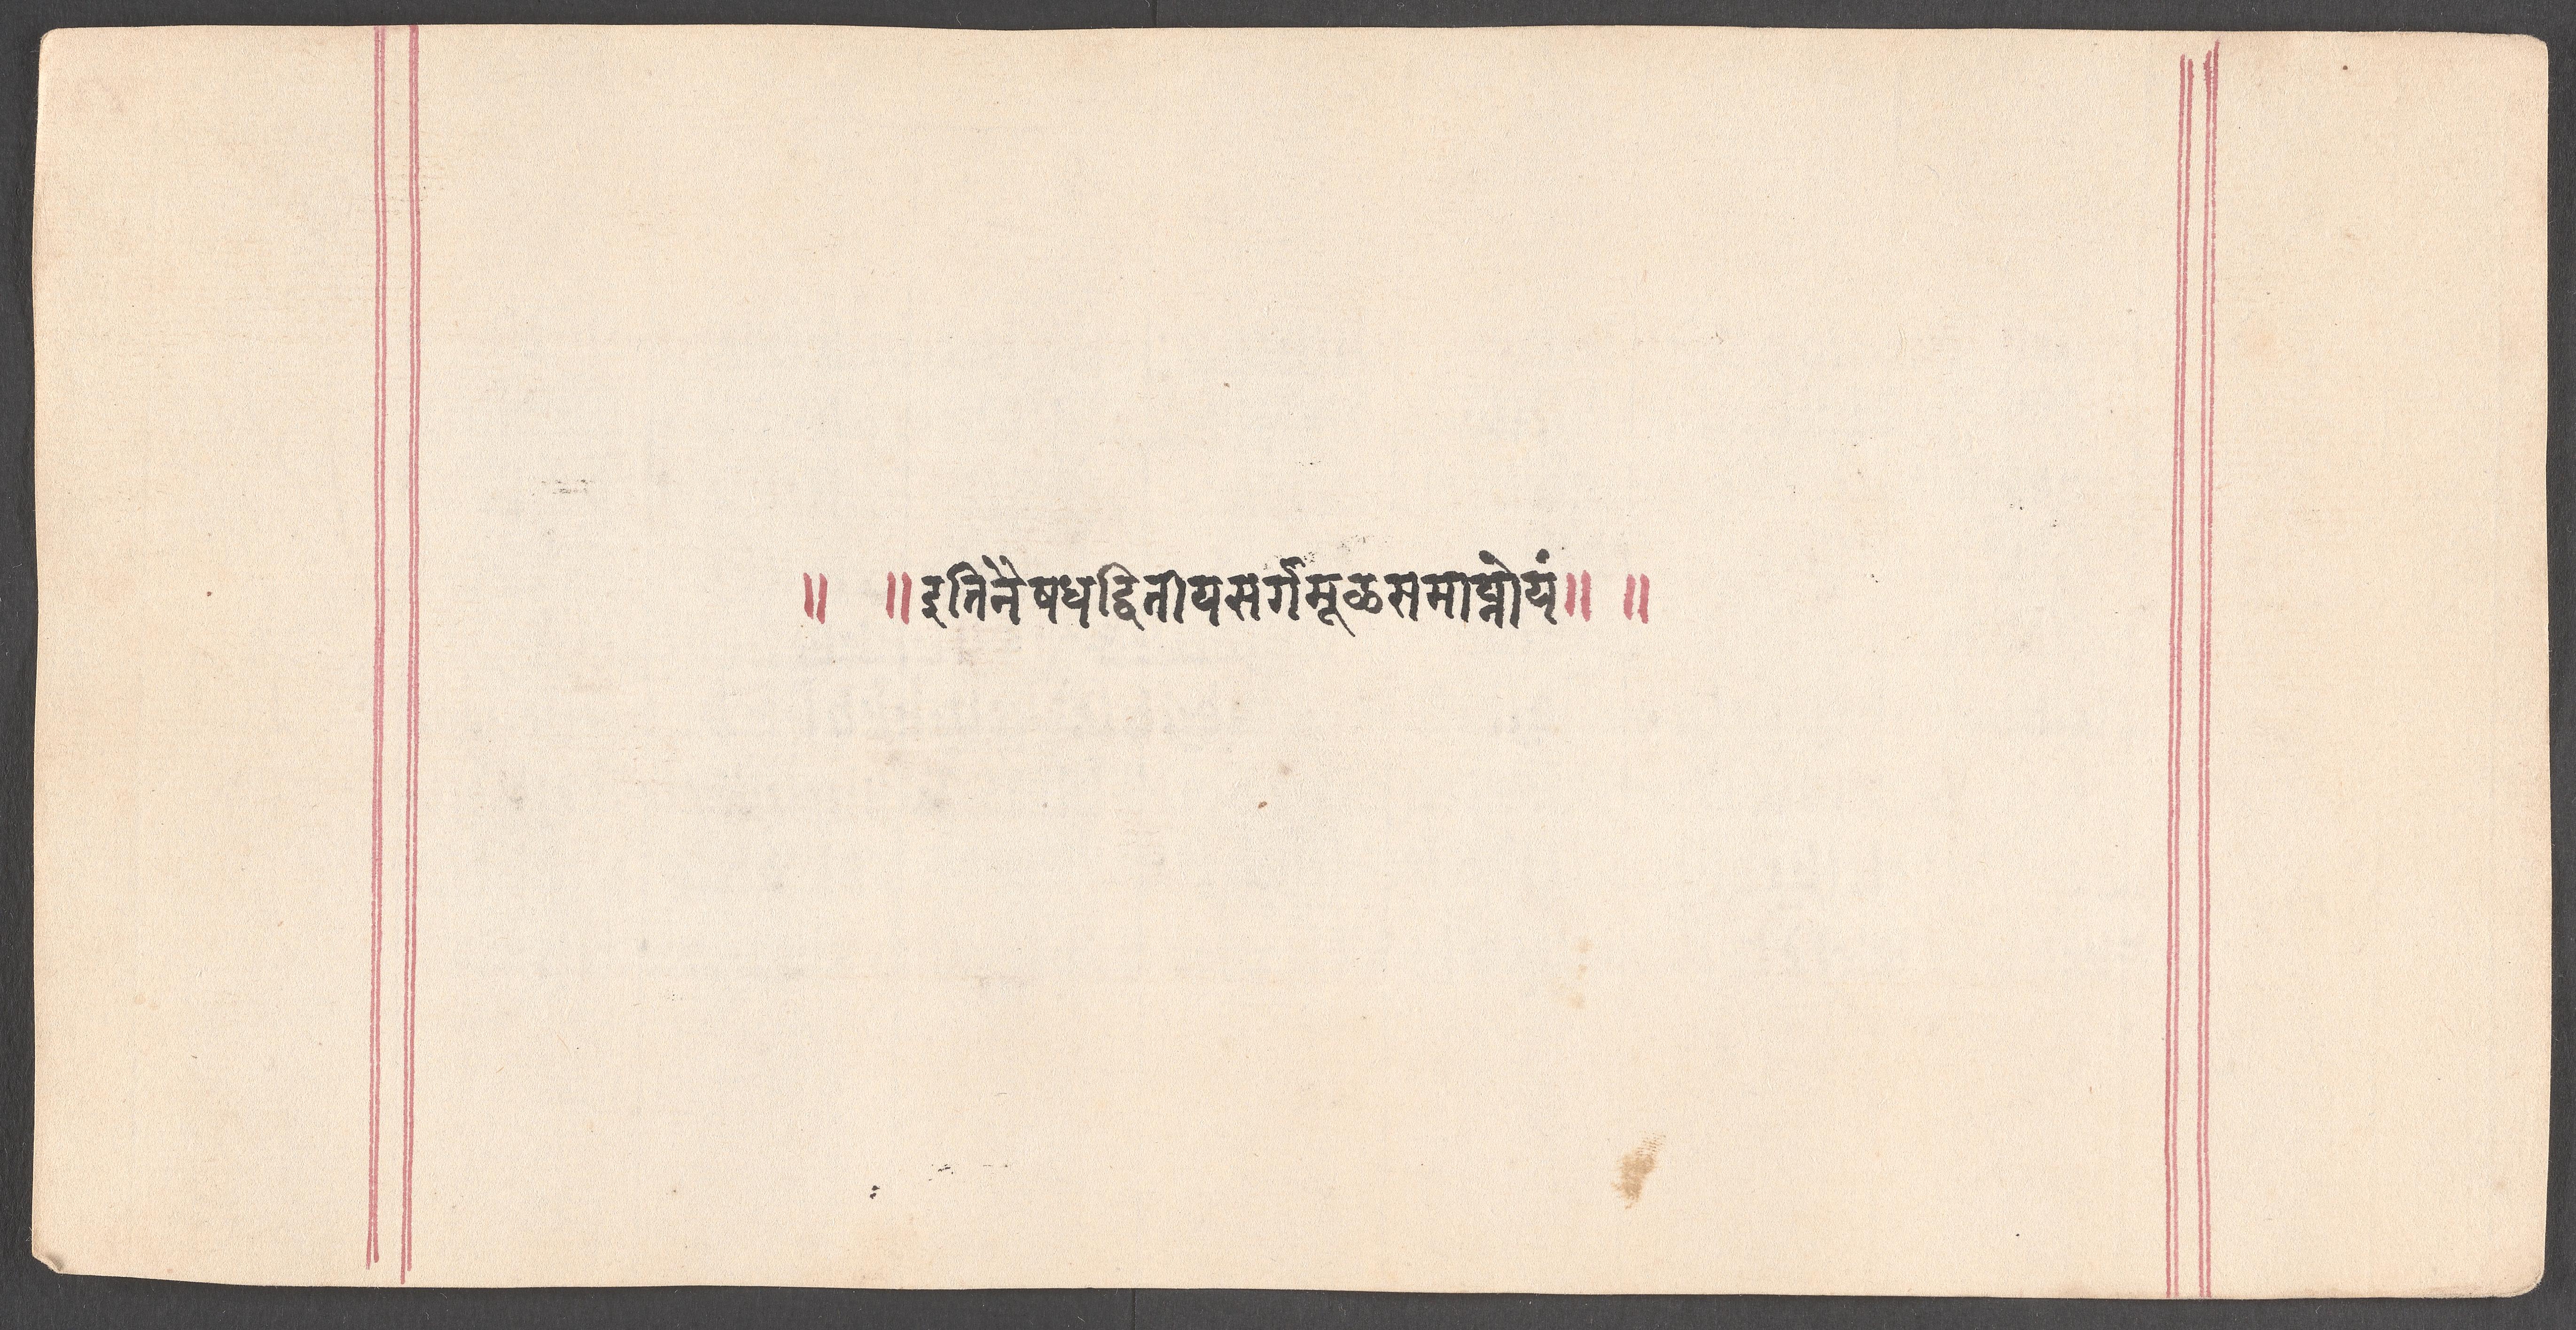 ॥ ॥इतिनैषधद्वितीयसर्गमूळसमाप्तोयं॥ ॥